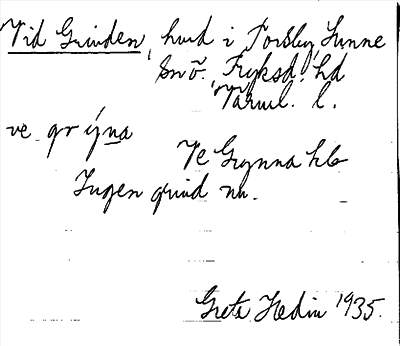 Vid Grinden, hmd i Torsby, Sunne
sn o., Fryksd. hd
Värml. l.
ve grýna
Ve Grynna hb
Ingen grind nu.
Greta Hedin 1935.